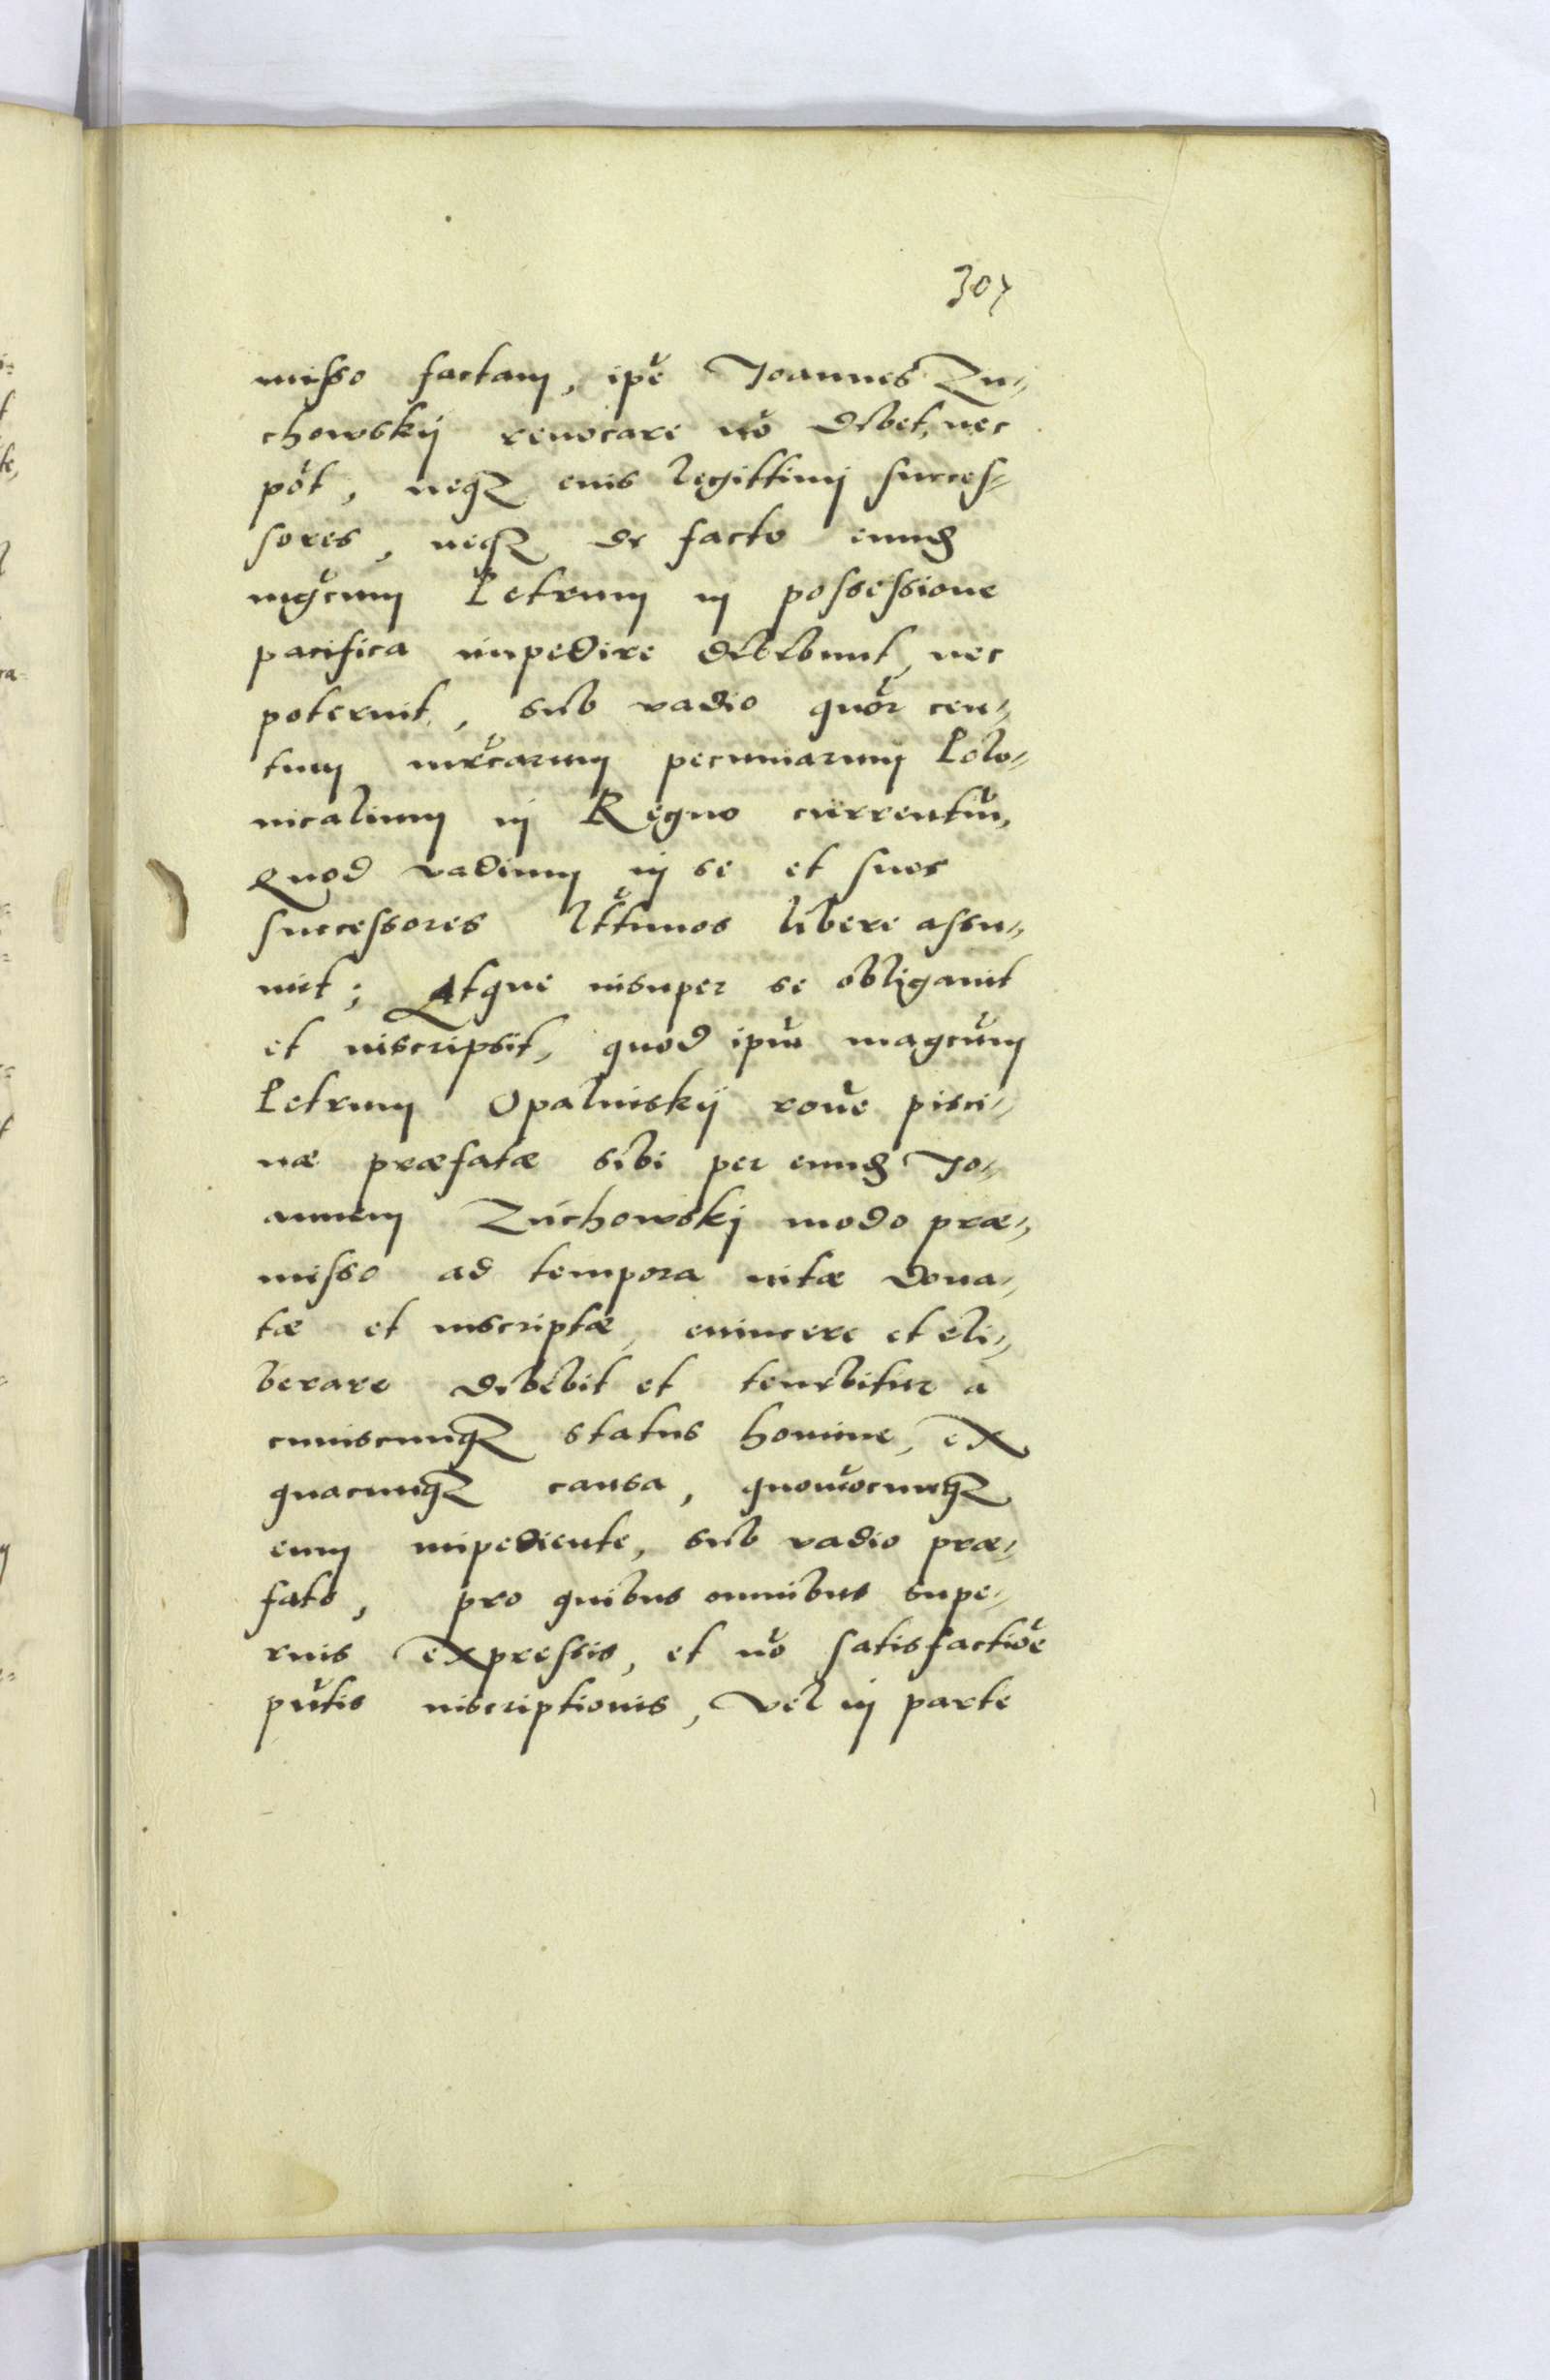 307
misso factam, ipẽ Joannes Zu-
chowskij reuocare nõ debet, nec
põt, neqз eius legittimj succes-
sores, neqз de facto eundẽ
mgcũm Petrum in possessione
pacifica impedire debebunt, nec
poterunt, sub vadio quõr cen-
tum mrcarum pecuniarum Polo-
nicalium in Regno currentiũ,
Quod vadium in se et suos
successores lttimos libere assu-
mit; Atque insuper se obligauit
et inscripsit, quod ipũ magcũm
Petrum Opalinskij rõne pisci-
næ præfatæ sibi per eundẽ Jo-
annem Zuchowskj modo præ-
misso ad tempora uitæ dona-
tæ et inscriptæ, euincere et eli-
berare debebit et tenebitur a
cuiuscunqз status homine, ex
quacunqз causa, quouõcunqз
eum impediente, sub vadio præ-
fato, pro quibus omnibus supe-
rius expressis, et nõ satisfactiõe
pñtis inscriptionis, vel in parte